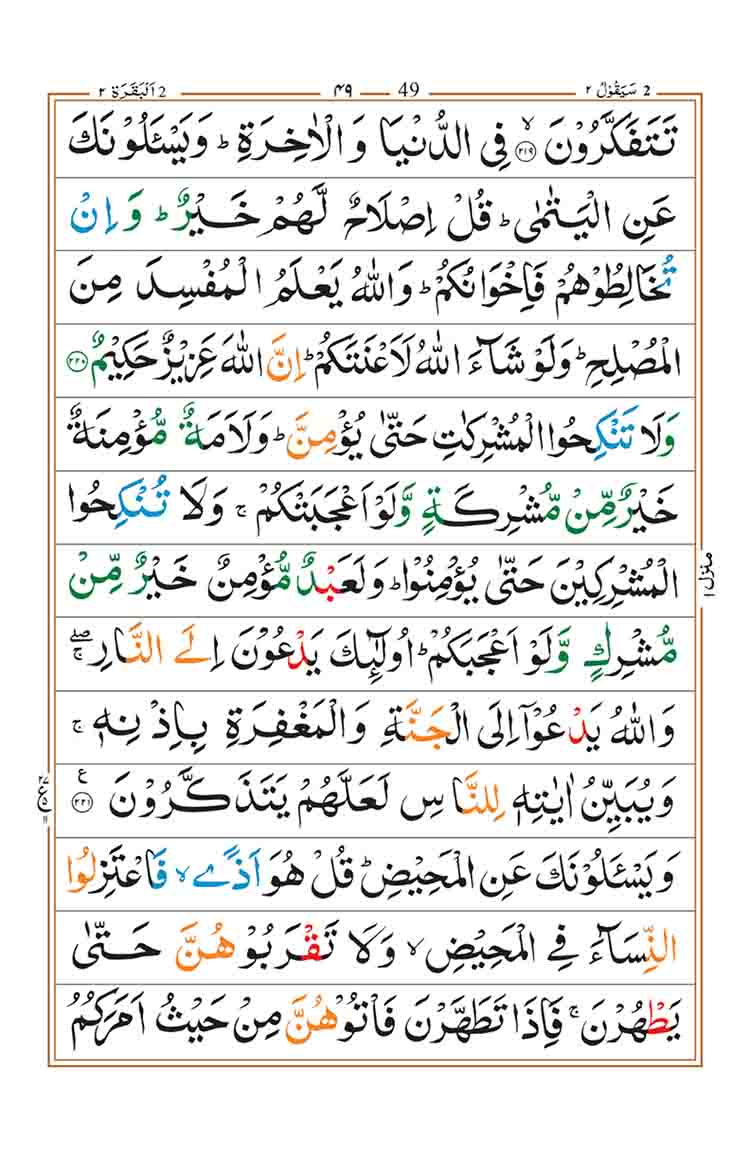 2 سَيَقُوْلُ ٢ 49 ٤٩ 2 اَلْبَقَرَة ٢
تَتَفَكَّرُوْنَ ۙ‏﴿۲۱۹﴾ فِى الدُّنْيَا وَ الْاٰخِرَةِ ؕ وَيَسْـَٔلُوْنَكَ
عَنِ الْيَتٰمٰى ؕ قُلْ اِصْلَاحٌ لَّهُمْ خَيْرٌ ؕ وَ اِنْ
تُخَالِطُوْهُمْ فَاِخْوَانُكُمْ ؕ وَاللّٰهُ يَعْلَمُ الْمُفْسِدَ مِنَ
الْمُصْلِحِ ؕ وَلَوْ شَآءَ اللّٰهُ لَاَعْنَتَكُمْ ؕ اِنَّ اللّٰهَ عَزِيْزٌ حَكِيْمٌ ﴿۲۲۰﴾
وَلَا تَنْكِحُوا الْمُشْرِكٰتِ حَتّٰى يُؤْمِنَّ ؕ وَلَاَمَةٌ مُّؤْمِنَةٌ
خَيْرٌ مِّنْ مُّشْرِكَةٍ وَّلَوْ اَعْجَبَتْكُمْ ۚ وَلَا تُنْكِحُوا
الْمُشْرِكِيْنَ حَتّٰى يُؤْمِنُوْا ؕ وَلَعَبْدٌ مُّؤْمِنٌ خَيْرٌ مِّنْ
مُّشْرِكٍ وَّلَوْ اَعْجَبَكُمْ ؕ اُولٰٓئِكَ يَدْعُوْنَ اِلَى النَّارِ ۖۚ
وَاللّٰهُ يَدْعُوْٓا اِلَى الْجَنَّةِ وَالْمَغْفِرَةِ بِاِذْنِهٖ ۚ
وَيُبَيِّنُ اٰيٰتِهٖ لِلنَّاسِ لَعَلَّهُمْ يَتَذَكَّرُوْنَ ﴿۲۲۱﴾ ع
وَيَسْـَٔلُوْنَكَ عَنِ الْمَحِيْضِ ؕ قُلْ هُوَ اَذًى ۙ فَاعْتَزِلُوا
النِّسَآءَ فِى الْمَحِيْضِ ۙ وَلَا تَقْرَبُوْهُنَّ حَتّٰى
يَطْهُرْنَ ۚ فَاِذَا تَطَهَّرْنَ فَاْتُوْهُنَّ مِنْ حَيْثُ اَمَرَكُمُ
منزل ١